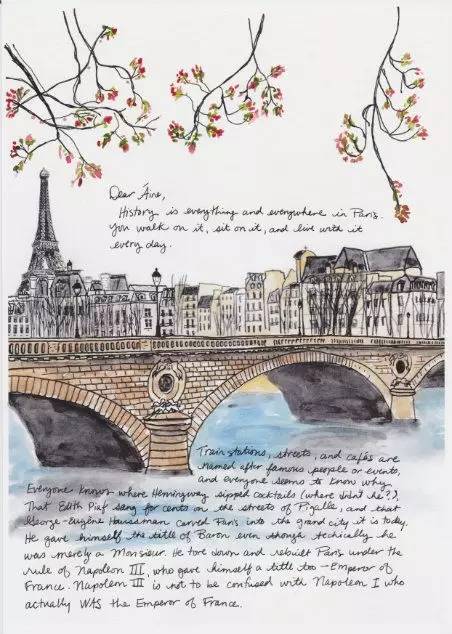 Dear Áine,
History is everything and everywhere in Paris.
You walk on it, sit on it, and live with it
every day.
Train stations, streets, and cafés are
named after famous people or events,
and everyone seems to know why.
Everyone knows where Hemingway sipped cocktails (where didn't he?).
That Edith Piaf sang for cents on the streets of Pigalle, and that
George-Eugène Haussman carved Paris into the grand city it is today.
He gave himself the title of Baron even though techically he
was merely a Monsieur. He tore down and rebuilt Paris under the
rule of Napoleon III, who gave himself a title too - Emperor of
France. Napoleon III is not to be confused with Napoleon I who
actually WAS the Emperor of France.